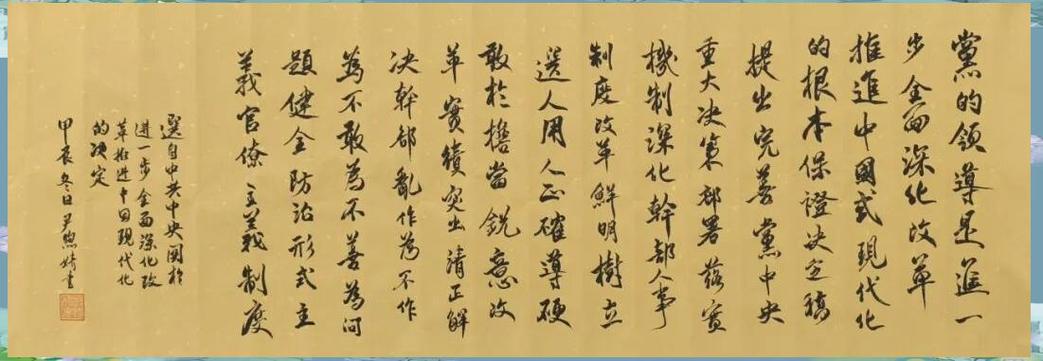 黨的領導是進一
步全面深化改革
推進中國式現代化
的根本保證决定稿
提出完善黨中央
重大决策部署落實
機制深化幹部人事
制度改革鮮明樹立
選人用人正確導硬
敢於擔當銳意改
革實績突出清正解
决幹部亂作為不作
為不敢為不善為问
題健全防治形式主
義官僚主義制度
選自中共中央関於
進一步全面深化改
革推進中国現代化
的决定
甲辰冬日尹